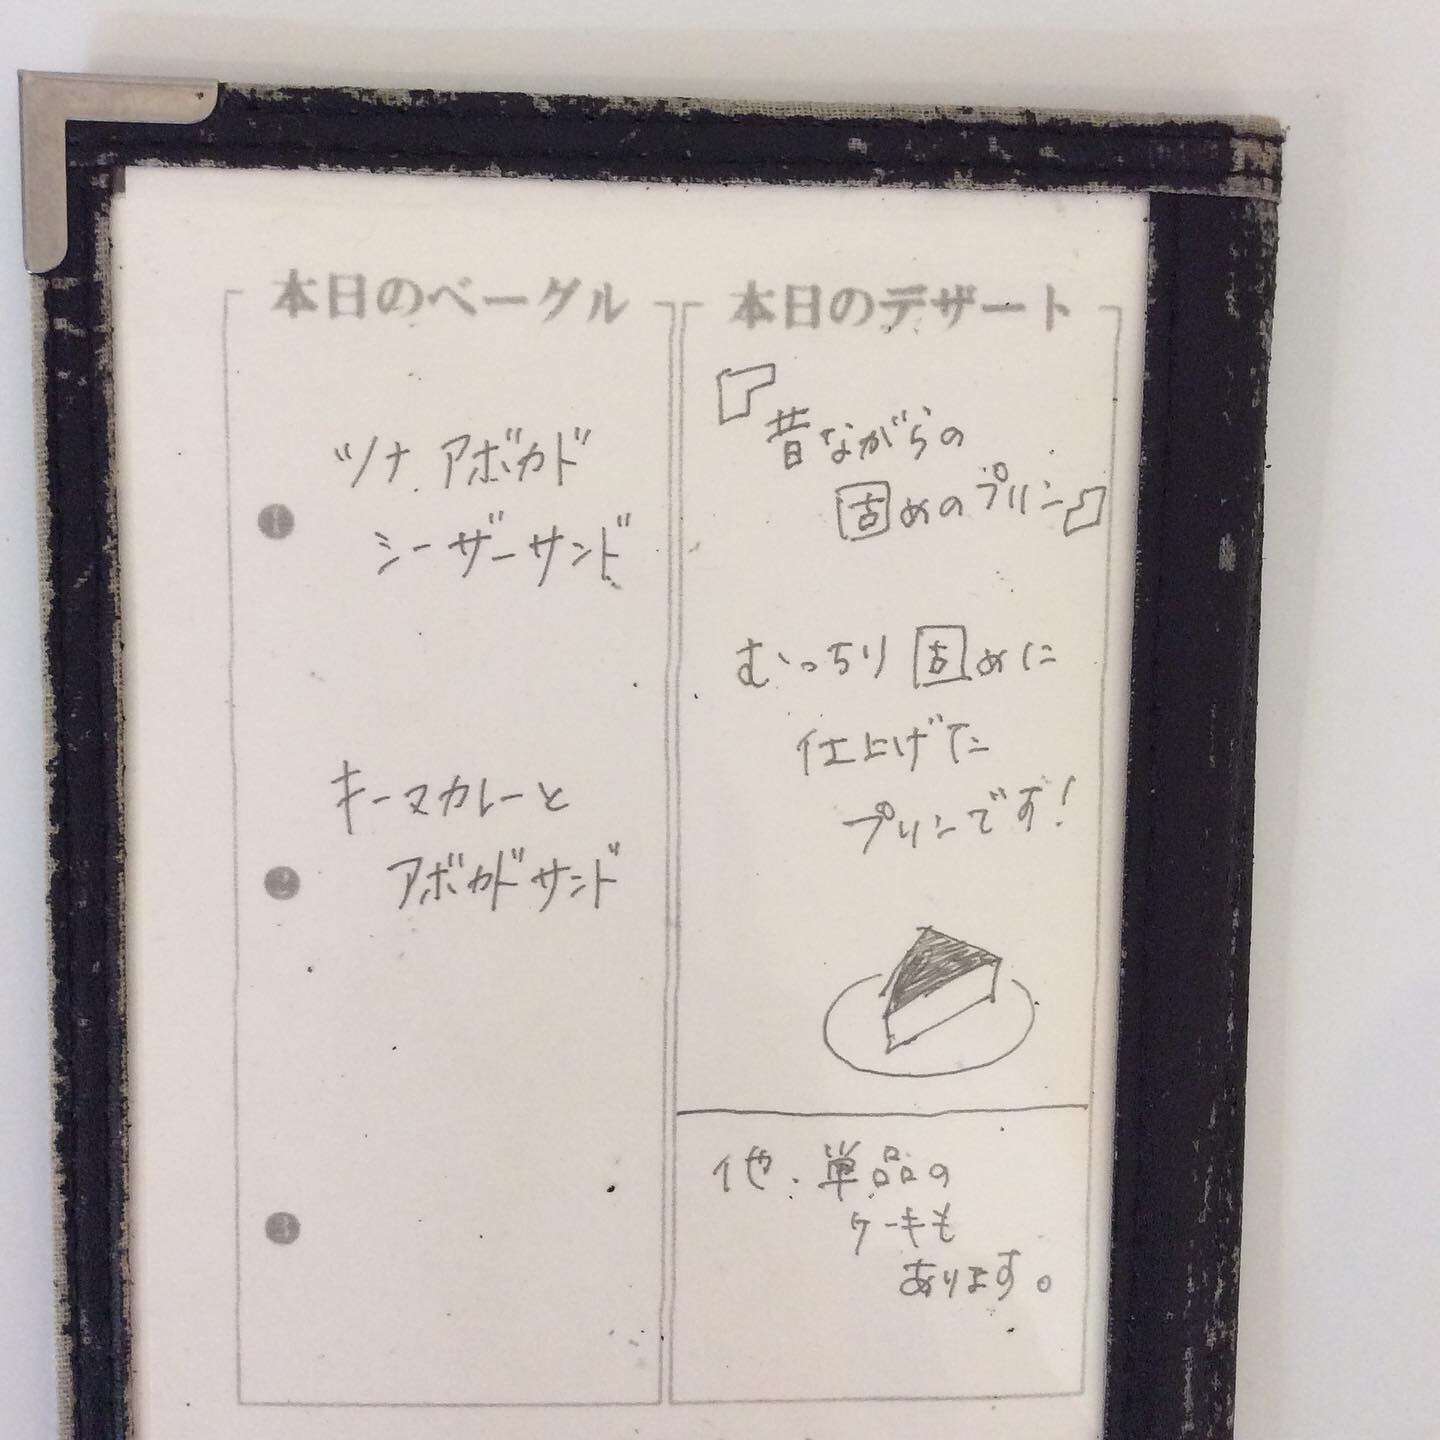 本日のベーグル
❶
ツナ アボカド
シーザーサンド
❷
キーマカレーと
アボカドサンド
❸
本日のデザート
『昔ながらの
固めのプリン』
むっちり固めに
仕上げた
プリンです!
他、単品の
ケーキも
あります。